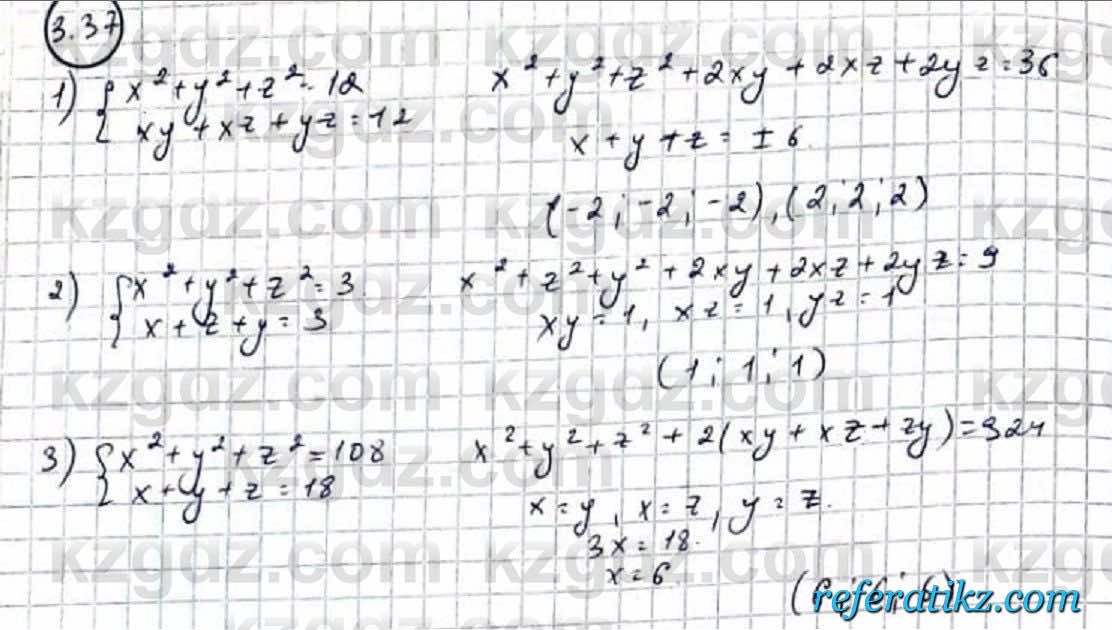 3.37
1) { x² + y² + z² = 12
xy + xz + yz = 12
x² + y² + z² + 2xy + 2xz + 2yz = 36
x + y + z = ± 6.
(-2; -2; -2), (2; 2; 2)
2) { x² + y² + z² = 3
x + z + y = 3
x² + z² + y² + 2xy + 2xz + 2yz = 9
xy = 1, xz = 1, yz = 1
(1; 1; 1)
3) { x² + y² + z² = 108
x + y + z = 18
x² + y² + z² + 2(xy + xz + zy) = 324
x = y, x = z, y = z.
3x = 18.
x = 6.
(6; 6; 6)
kzgdz.com
referatikz.com